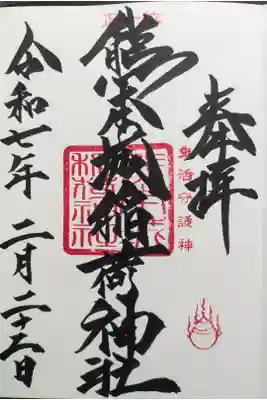 奉拝
生活守護神
熊本城稲荷神社
令和七年 二月二十三日